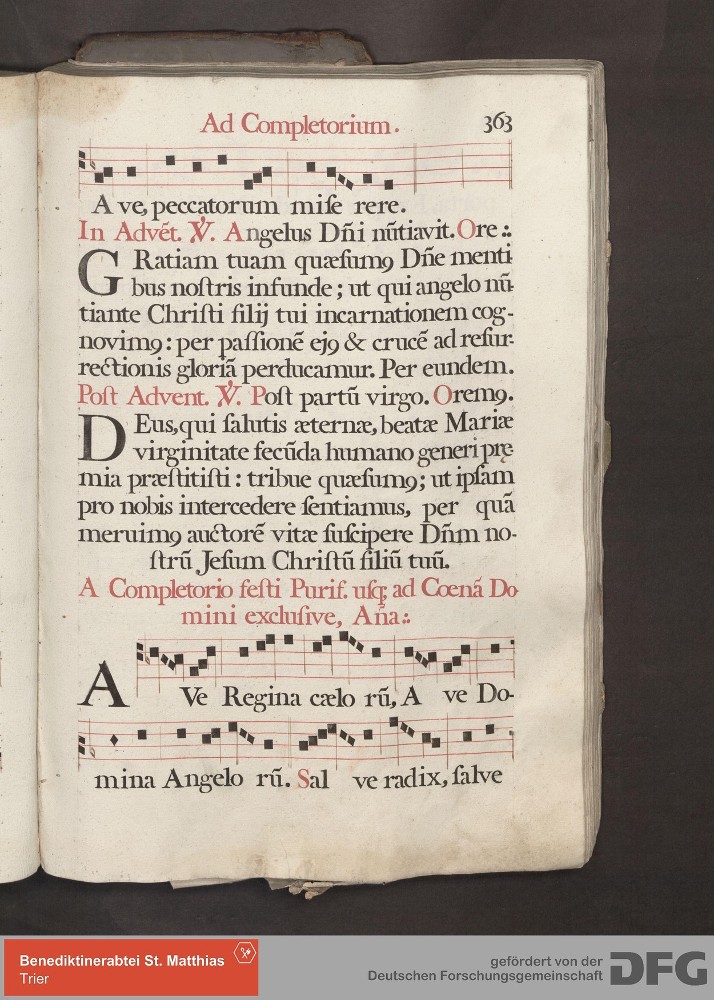 Ad Completorium.
363
A ve, peccatorum miſe rere.
In Advẽt. ℣. Angelus Dñi nũtiavit. Ore:.
GRatiam tuam quæſumꝯ Dñe menti
bus noſtris infunde; ut qui angelo nũ-
tiante Chriſti filij tui incarnationem cog-
novimꝯ: per paſſionẽ ejꝯ & crucẽ ad reſur-
rectionis gloriã perducamur. Per eundem.
Poſt Advent. ℣. Poſt partũ virgo. Oremꝯ.
DEus, qui ſalutis æternæ, beatæ Mariæ
virginitate fecũda humano generi prę-
mia præſtitiſti: tribue quæſumꝯ; ut ipſam
pro nobis intercedere ſentiamus, per quã
meruimꝯ auctorẽ vitæ ſuſcipere Dñm no-
ſtrũ Jeſum Chriſtũ filiũ tuũ.
A Completorio feſti Purif. uſq; ad Coenã Do
mini excluſive, Aña:.
AVe Regina cælo rũ, A ve Do-
mina Angelo rũ. Sal ve radix, ſalve
Benediktinerabtei St. Matthias
Trier
gefördert von der
Deutschen Forschungsgemeinschaft
DFG